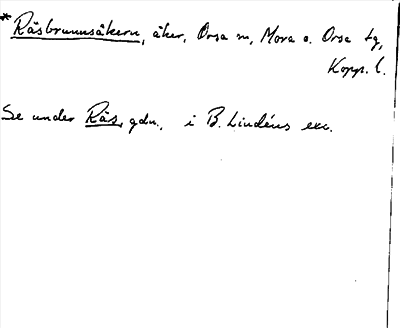 * Räsbrunnsåkern, åker, Orsa sn, Mora o. Orsa tg,
Kopp. l.
Se under Räs, gdn., i B. Lindéns exc.